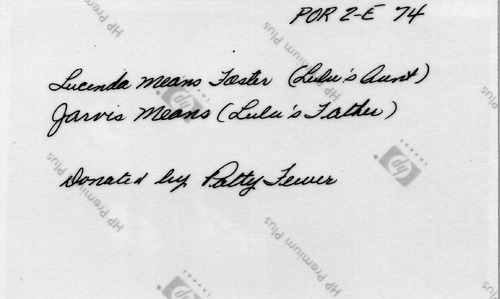 POR 2-E 74
Lucinda Means Foster (Lulu's Aunt)
Jarvis Means (Lulu's Father)
Donated by Patty Fewer
HP Premium Plus
HP Premium Plus
HP Premium Plus
HP Premium Plus
HP Premium Plus